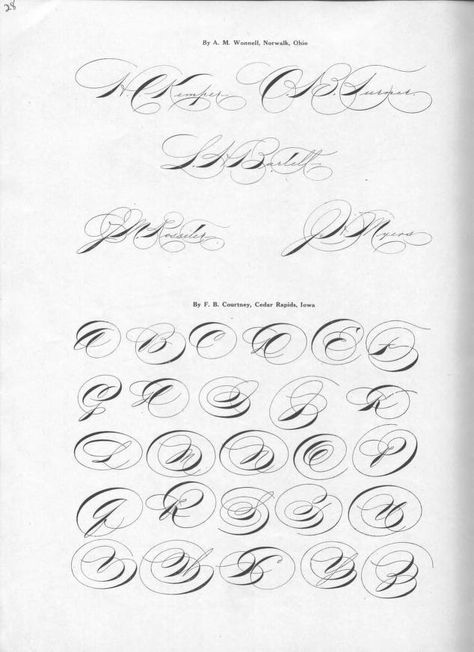 28
By A. M. Wonnell, Norwalk, Ohio
H. C. Kemper C. B. Turner
L. H. Bartlett
J. M. J. K. Myers
By F. B. Courtney, Cedar Rapids, Iowa
A B C D E F
G H I J K
L M N O P
Q R S T U
V W X Y Z